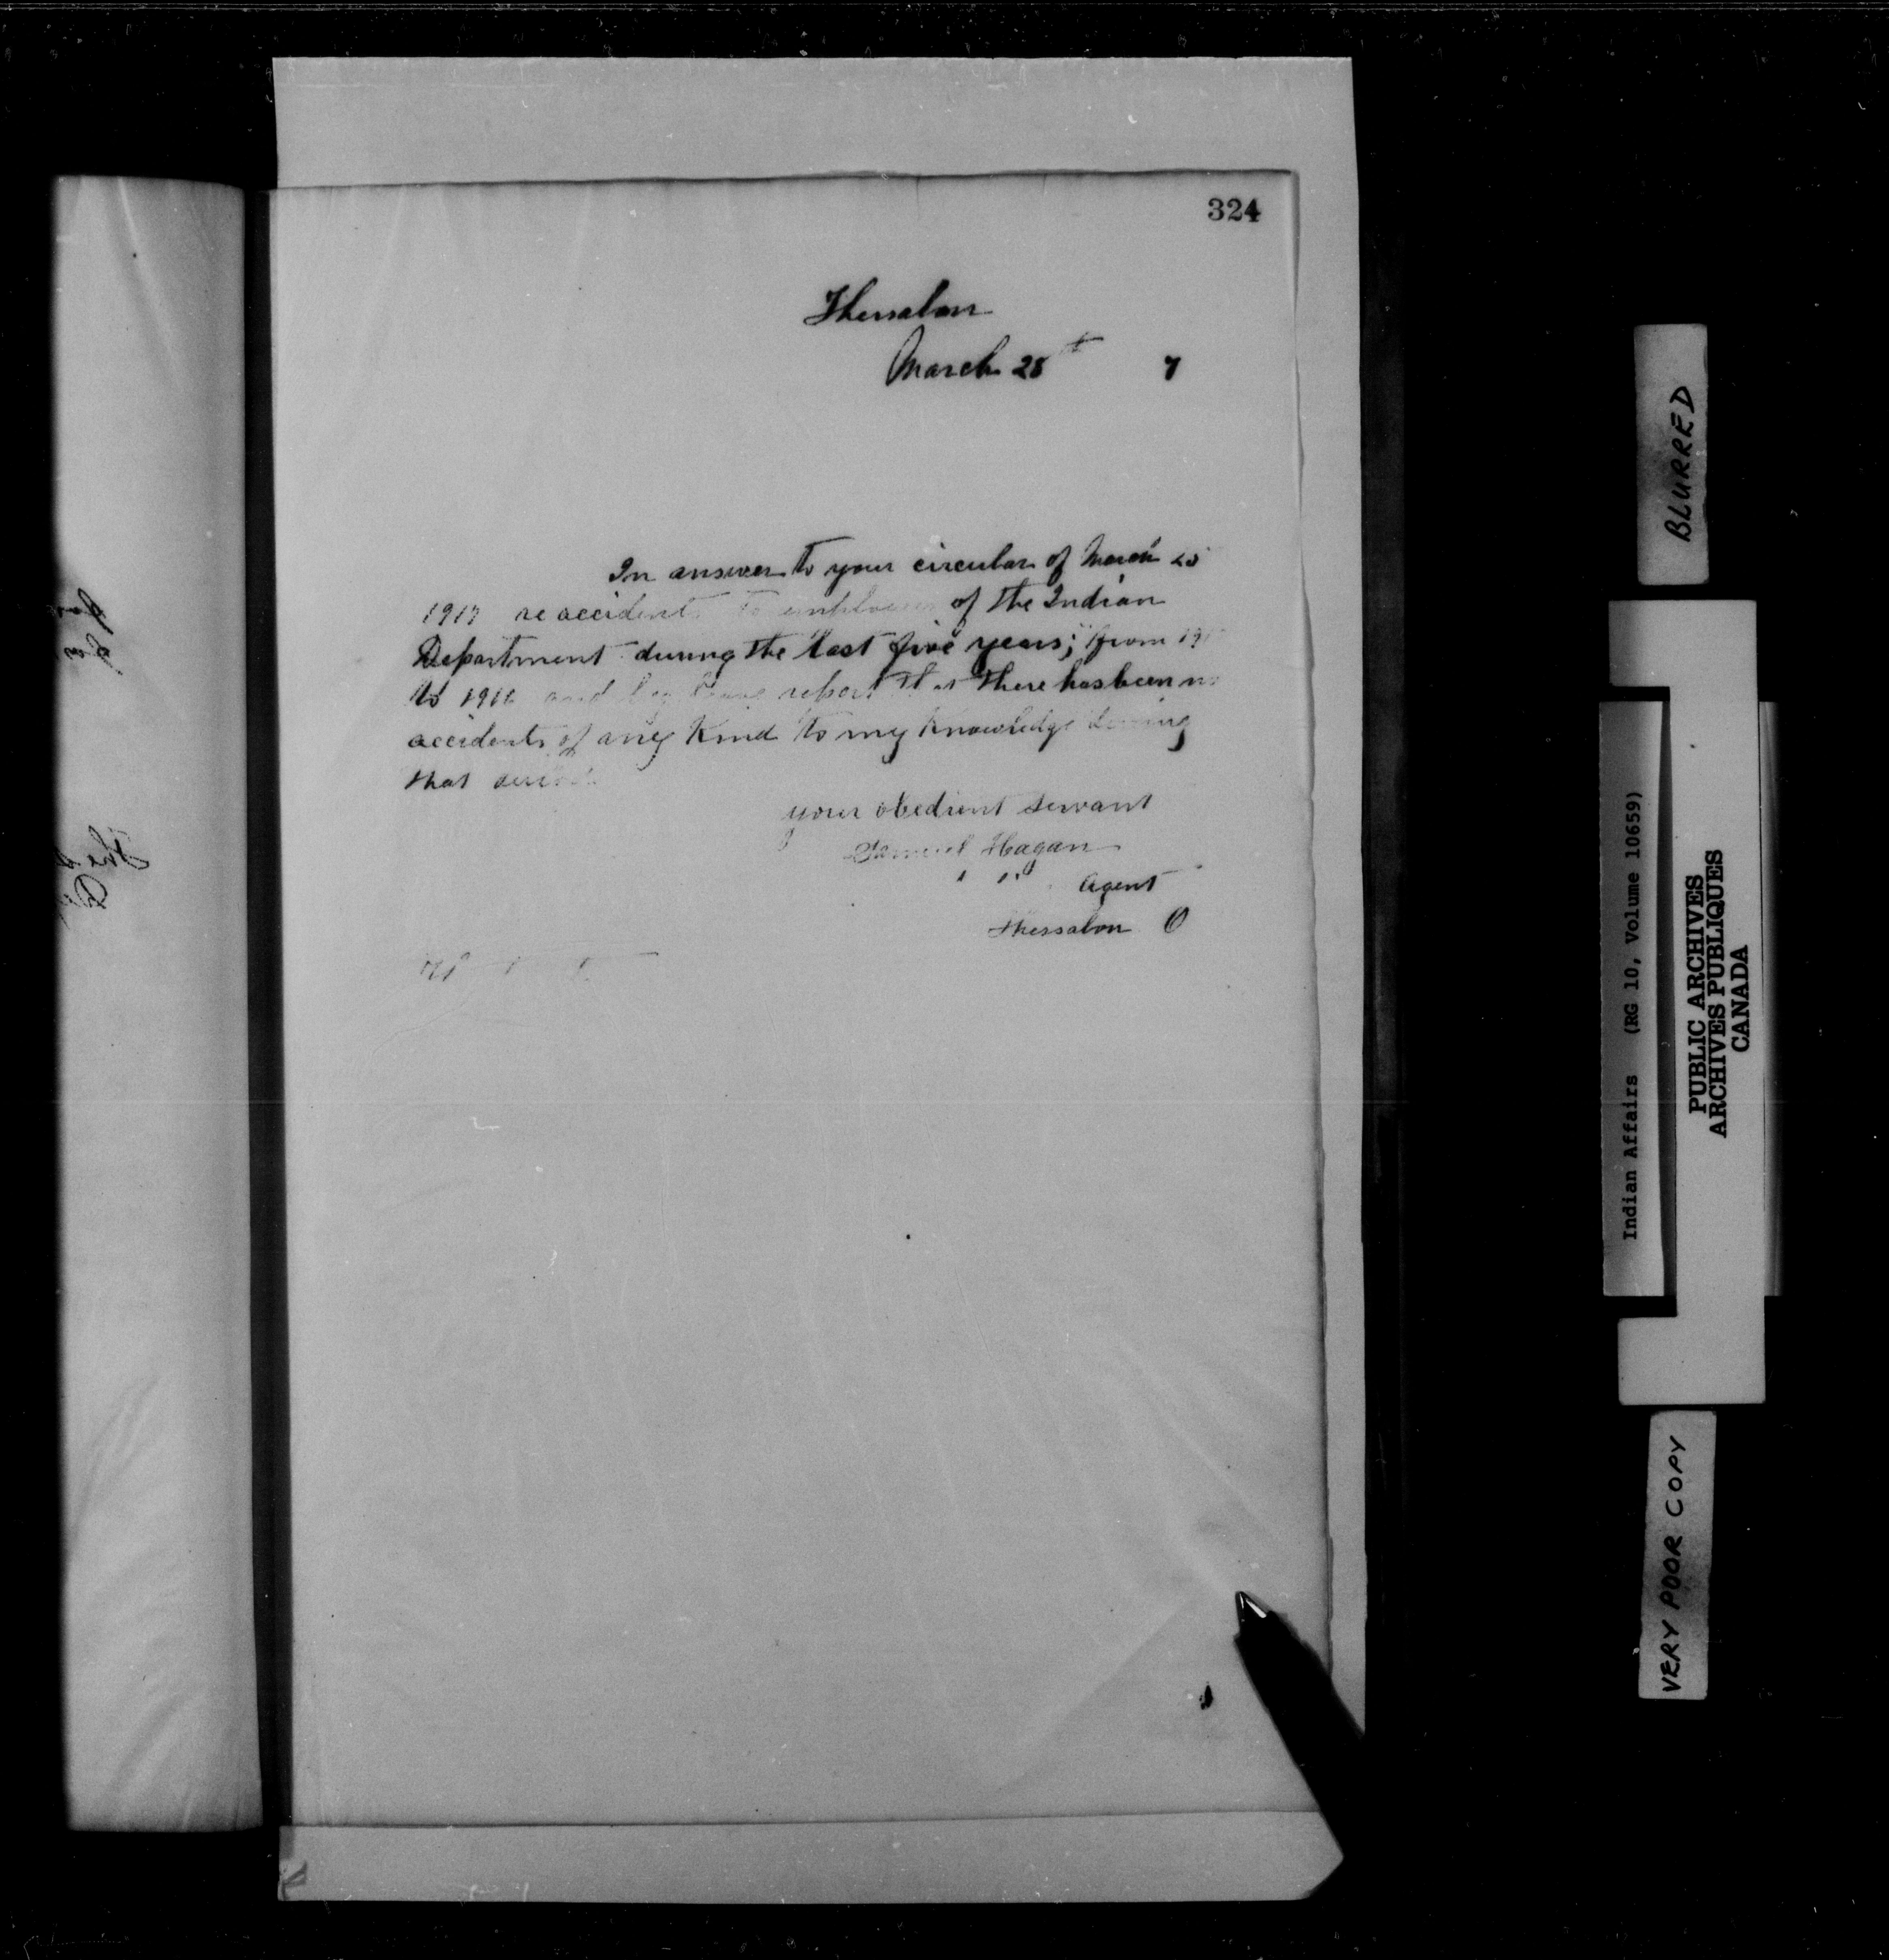 324
Thessalon
March 28th 7
In answer to your circular of March 23
1917 re accidents to employees of the Indian
Department during the last five years; from 19
to 1916 and beg leave report that there has been no
accidents of any Kind to my Knowledge during
that
your obedient servant
Samuel Hagan
Agent
Thessalon O
BLURRED
Indian Affairs (RG 10, Volume 10659)
PUBLIC ARCHIVES
ARCHIVES PUBLIQUES
CANADA
VERY POOR COPY